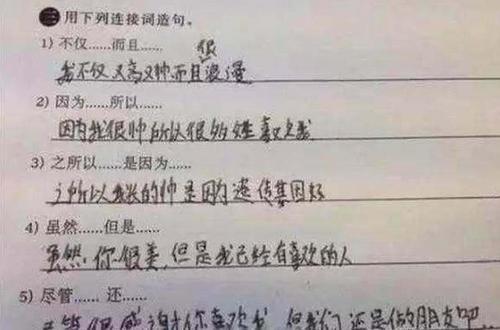 三 用下列连接词造句。
1) 不仅……而且……
我不仅又高又帅而且很浪漫
2) 因为……所以……
因为我很帅所以很多女生喜欢我
3) 之所以……是因为……
之所以我长的帅是因为遗传基因好
4) 虽然……但是……
虽然你很美,但是我已经有喜欢的人
5) 尽管…… 还……
尽管很感谢你喜欢我 但我们还是做朋友吧